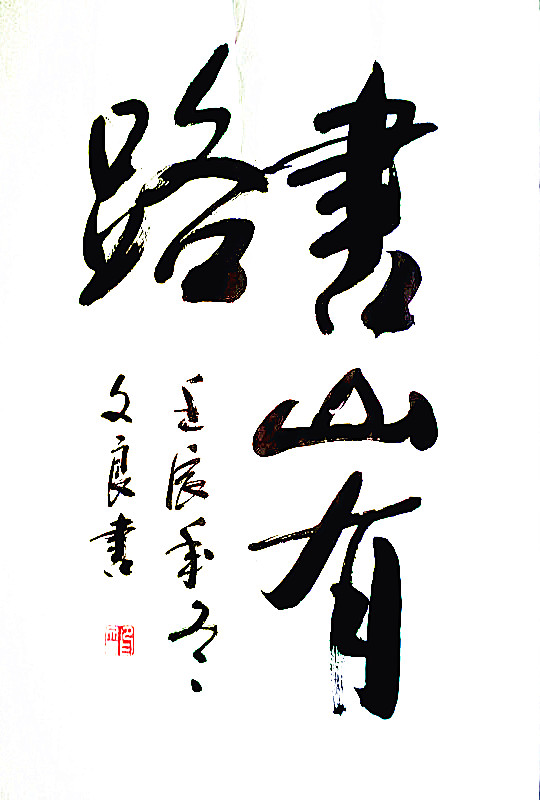 書山有
路
壬辰年冬
文良書